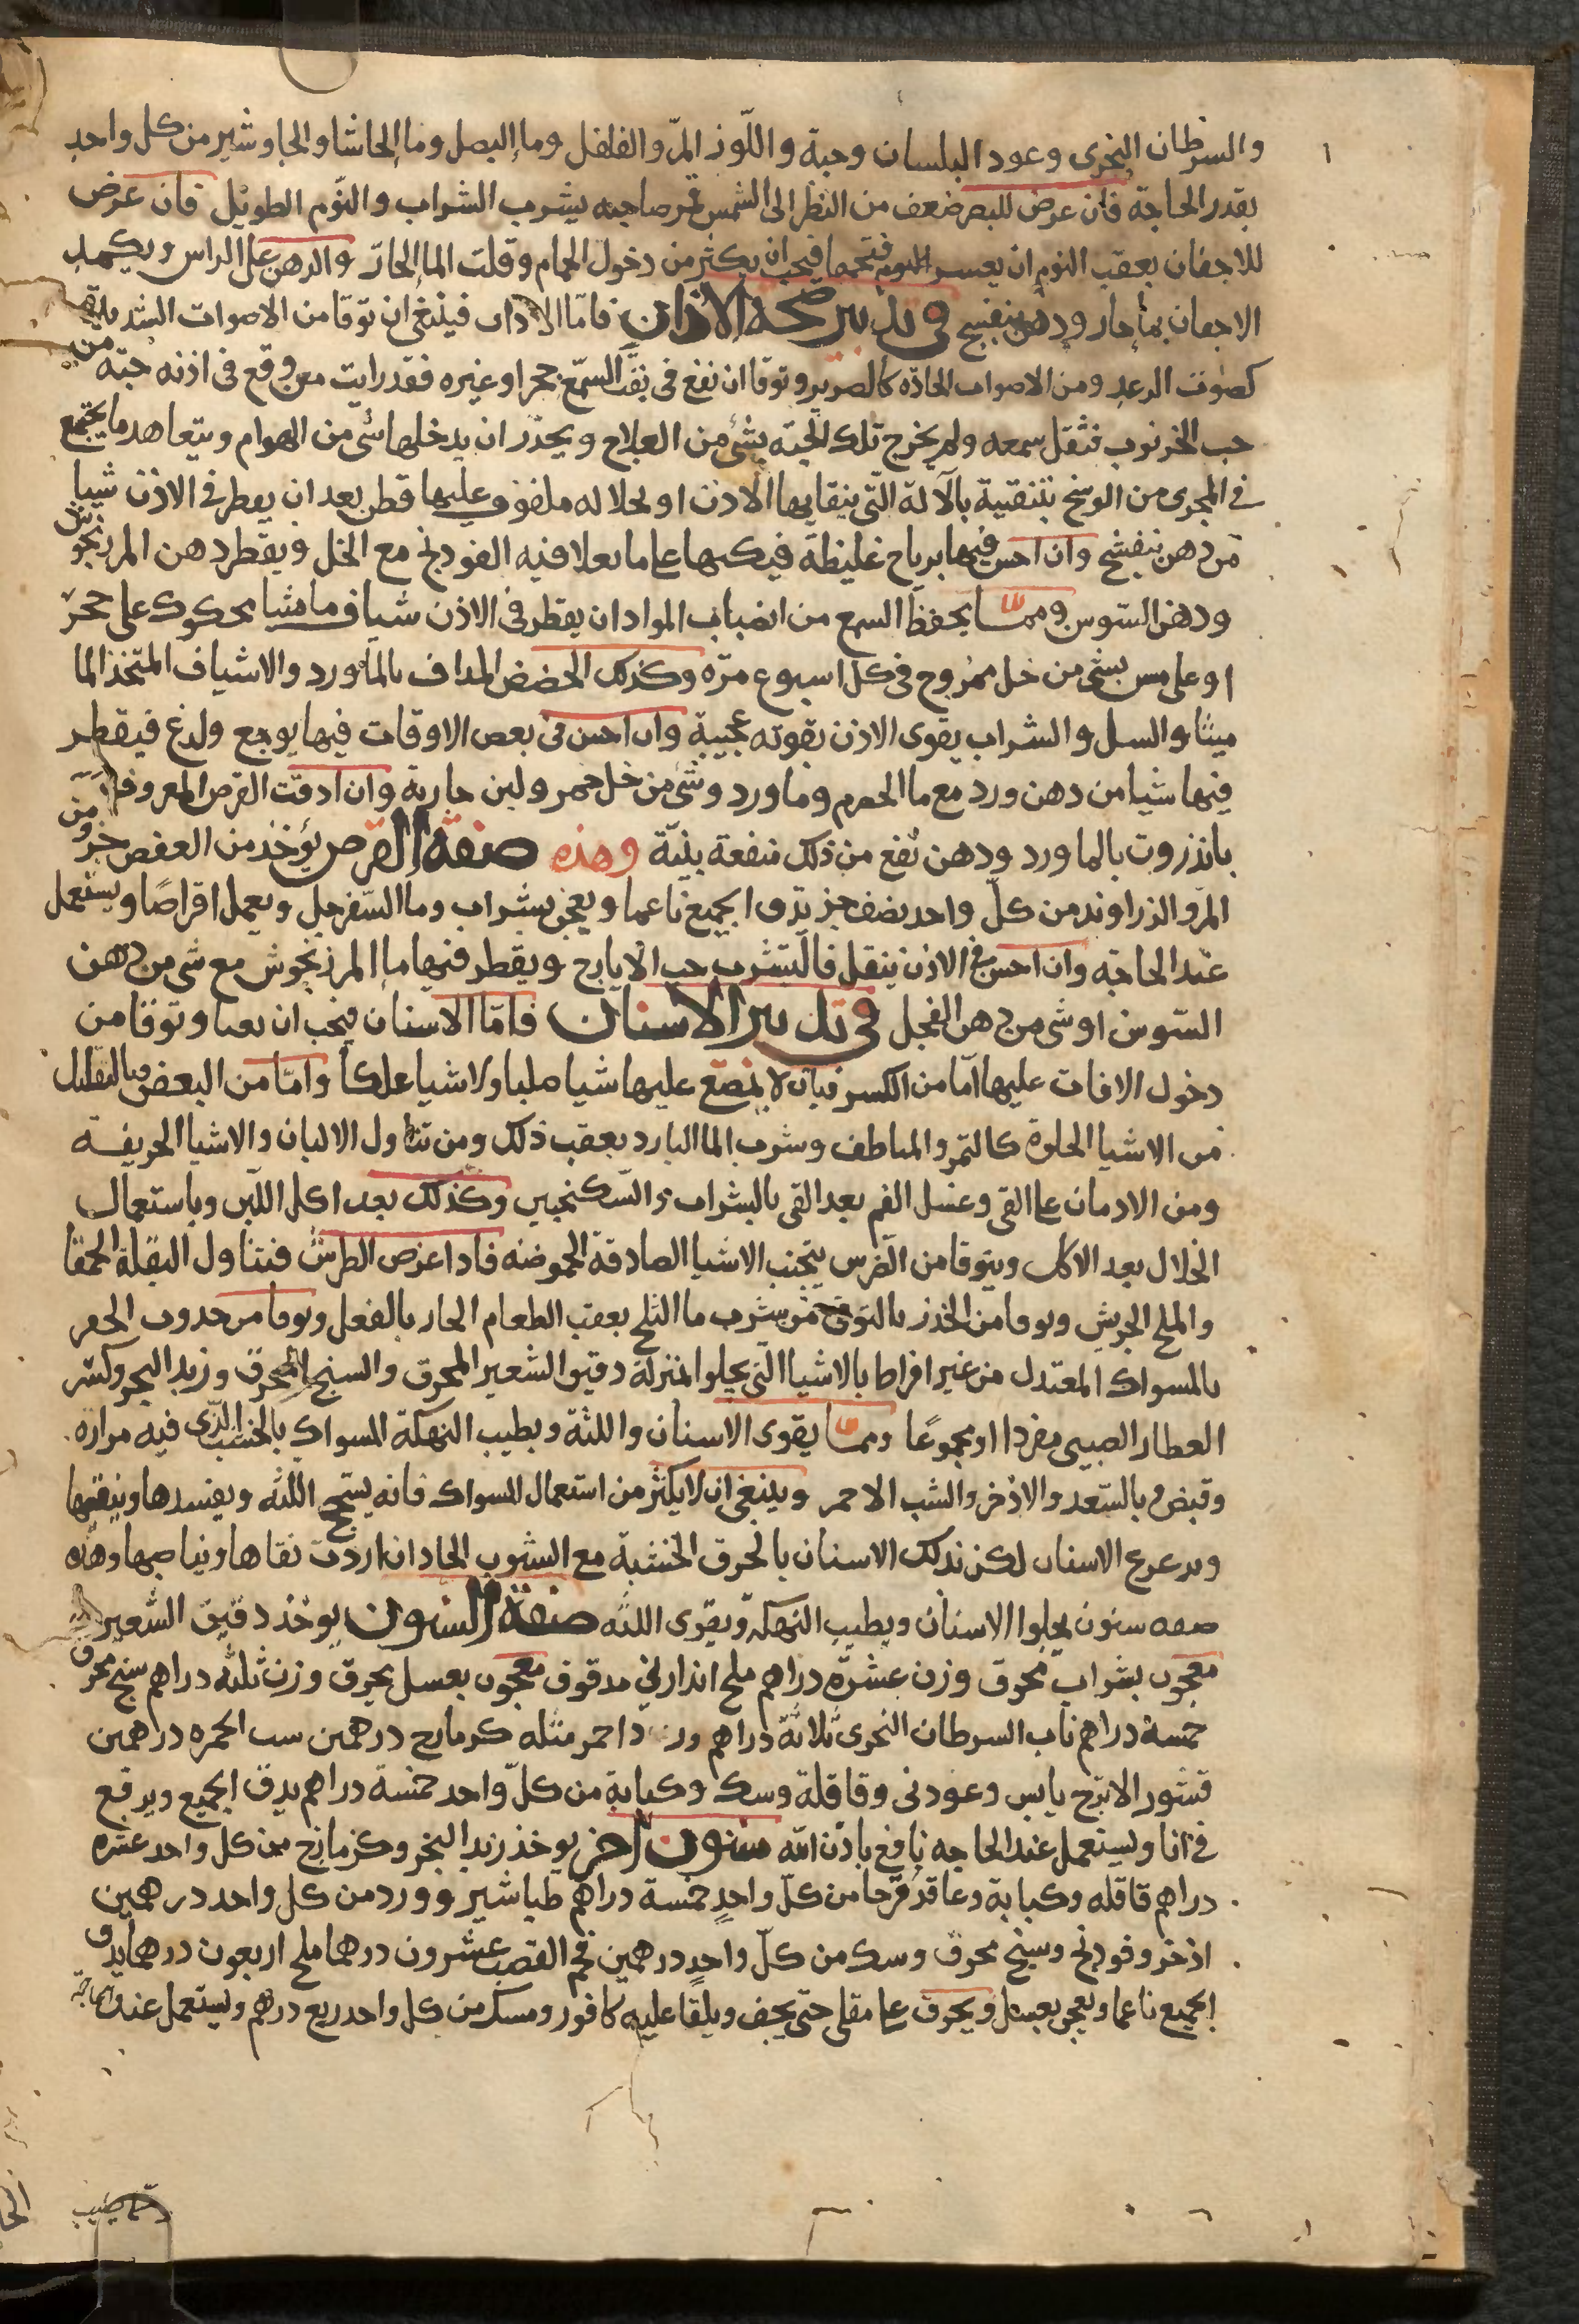 والسرطان البحرى وعود البلسان وحبة واللّوز المرّ والفلفل وما البصل وما الحاشا والجاوشير من كل واحد
بقدر الحاجة فان عرض للبصر ضعف من النظر الى الشمس صاحبه يشرب الشراب والنوم الطويل فان عرض
للاجفان بعقب النوم ان يعسر فتحها فيجب ان يكثر من دخول الحمام وقلت الما الحارّ والدهن على الراس ويكمد
الاجفان بما حار ودهن بنفسج في تدبير صحه الاذان فامّا الاذان فينبغى ان توقا من الاصوات الشديدة
كصوت الرعد ومن الاصوات الحادّه كالصرير وتوقا ان تقع فى ثقب السمع حجر او غيره فقد رايت من وقع فى اذنه حبّه من
حب الخرنوب فثقل سمعه ولم يخرج تلك الحبّه بشئ من العلاج ويحذّر ان يدخلها شئ من الهوام ويتعاهد ما يجتمع
في المجرى من الوسخ بتنقية بالآلة الّتى ينقا بها الاذن او بخلاله ملفوف عليها قطن بعد ان يقطر في الاذن شيا
من دهن بنفسج وان احس فيها برياح غليظة فيكبها على ما يغلا فيه الفودنج مع الخل ويقطر دهن المرزنجوش
ودهن السّوسن وممّا يحفظ السمع من انصباب المواد ان يقطر فى الاذن شياف ماميثا محكوك على حجر
او على مسن بشئ من خل ممزوج فى كل اسبوع مرّه وكذلك الحضض المداف بالماورد والاشياف المتخذ الما
ميثا والسل والشراب يقوى الاذن بقوته عجيبة وان احس فى بعض الاوقات فيها بوجع ولدغ فيقطر
فيها شيا من دهن ورد مع ما الحصرم وما ورد وشئ من خل خمر ولبن جارية وان ادفت القرص المعروف
بانزروت بالماورد ودهن نفع من ذلك منفعة بيّنة وهذه صفة القرص يؤخذ من العفص جزو من
المرّ والزراوند من كلّ واحد نصف جز يدق الجميع ناعما ويعجن بشراب وما السّفرجل ويعمل اقراصًا ويستعمل
عند الحاجة وان احس فى الاذن بثقل فاليشرب حب الايارج ويقطر فيها ما المرزنجوش مع شى من دهن
السّوسن او شى من دهن الفجل في تدبير الاسنان فامّا الاسنان فيجب ان وتوقا من
دخول الافات عليها امّا من الكسر فبان لا يمضغ عليها شيا صلبا ولا شيا علكا وامّا من البعض فبالتقليل
من الاشيا الحلوة كالتمر والناطف وشرب الما البارد بعقب ذلك ومن تناول الالبان والاشيا الحريفة
ومن الادمان على القى وغسل الفم بعد القى بالشراب والسّكنجبين وكذلك بعد اكل اللّبن وباستعمال
الخلال بعد الاكل ويتوقا من الضرس بتجنب الاشيا الصادقة الحموضه فاذا عرض الطرش فتناول البقلة الحمقا
والملح الجريش وتوقا من الخدر بالتوقى من شرب ما الثلج بعقب الطعام الحار بالفعل وتوقا من حدوث الحفر
بالمسواك المعتدل من غير افراط بالاشيا الّتى يجلوا بمنزلة دقيق الشعير المحرق والسنج المحرق وزبد البحر وكسر
العطار الصينى مفردا او مجموعًا وممّا يقوى الاسنان واللثة ويطيب النهكة المسواك بالخشب الّذى فيه مرارة
وقبض وبالسّعد والاذخر والشب الاحمر وينبغى ان لا يكثر من استعمال المسواك فانه يسحج اللثه ويفسدها وينقيها
ويزعزع الاسنان لكن تدلك الاسنان بالخرق الخشنة مع الشبوب الحاد ان اردت نقاها وبياضها وهذه
صفه سنون يجلوا الاسنان ويطيب النهكة ويقوى اللثه صفة السنون يوخذ دقيق الشعير
معجون بشراب محرق وزن عشرة دراهم ملح اندارنى مدقوق معجون بعسل محرق وزن ثلثه دراهم سنج محرق
خمسة دراهم ناب السرطان البحرى ثلاثة دراهم احمر مثله كزمازج درهمين درهمين
قشور الاترج يابس وعود نى وقاقلة وسك وكبابة من كلّ واحد خمسة دراهم يدق الجميع ويرفع
في انا ويستعمل عند الحاجه نافع باذن الله سنون اخر يوخذ زبد البحر وكزمازج من كل واحد عشره
دراهم قاقله وكبابة وعاقرقرحا من كلّ واحدٍ خمسة دراهم طباشير وورد من كل واحد درهمين
اذخر وفودنج وسنج محرق وسك من كلّ واحدٍ درهمين فحم القصب عشرون درهما ملح اربعون درهما يدق
الجميع ناعما ويعجن بعسل ويحرق على مقلى حتى يجف ويلقا عليه كافور ومسك من كل واحد ربع درهم ويستعمل عند الحاجة